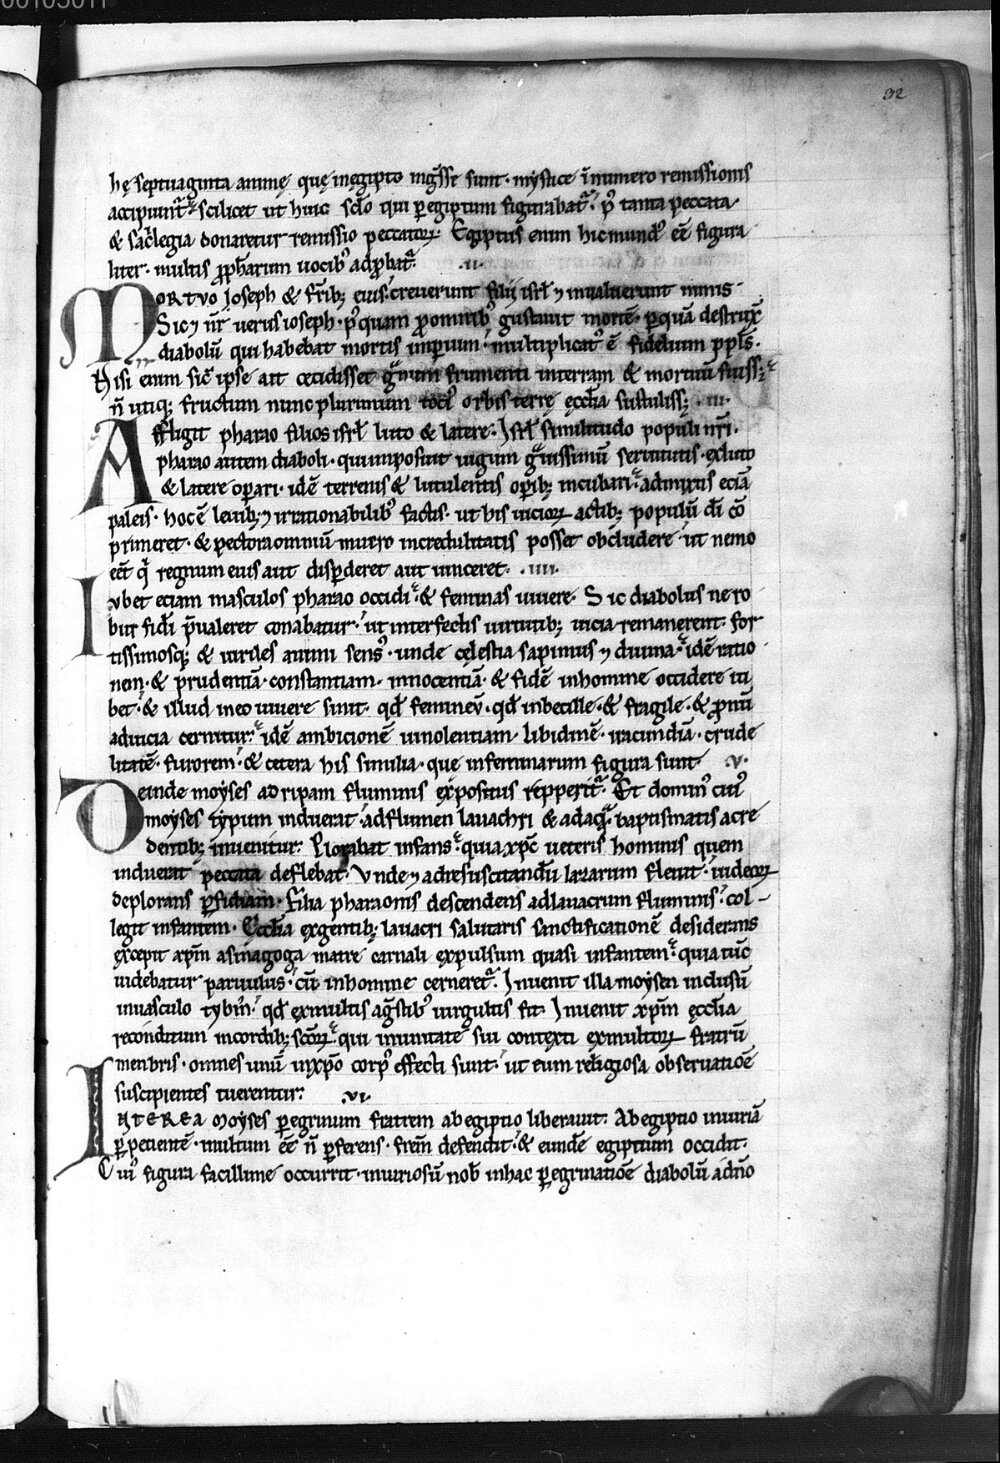 00103011
92
hę septuaginta animę quę inegipto ingr̃sse sunt · mystice ĩnumero remissionis
accipiunt᷑ · scilicet ut huic sc̃lo qui ꝑegiptum figurabat᷑ · p᷒ tanta peccata ·
& sac̃legia donaretur remissio peccatoꝝ · Egiptus enim hic mund᷒ eẽ figura
liter · multis ꝓph̃arum uocib᷒ adꝓbat᷑ · ·ii·
MORTVO ioseph & fr̃ib; eius · creuerunt filii isrl̃ ⁊ inualuerunt nimis ·
Sic ⁊ nr̃ uerus ioseph · p᷒quam ꝓ omnib᷒ gustauit mortẽ · p᷒quã destrux̃
diabolũ qui habebat mortis imꝑium · multiplicat᷒ ẽ fidelium pp̃ls̃ ·
Nisi enim sic̃ ipse ait cecidisset g̃num frumenti interram & mortuũ fuiss; ·
ñ utiq; fructum nunc plurimum toci᷒ orbis terrę ęccl̃ia sustuliss; · ·iii·
Affligit pharao filios isrl̃ luto & latere · Isrl̃ similitudo populi nr̃i ·
pharao autem diaboli · qui imposuit iugum g̃uissimũ seruitutis · exluto
& latere oꝑari · idẽ terrenis & lutulentis oꝑib; incubari · admixtis eciã
paleis · hoc ẽ leuib; ⁊ irrationabilib᷒ factis · ut his uicioꝝ actib; populũ dĩ cõ
primeret · & pectora omniũ muro incredulitatis posset obcludere · ut nemo
eẽt q᷑ regnum eius aut disꝑderet aut uinceret · ·iiii·
Ivbet eciam masculos pharao occidi · & feminas uiuere · Sic diabolus ne ro
bur fidei p̃ualeret conabatur · ut interfectis uirtutib; uicia remanerent · for
tissimosq; & uiriles animi sens᷒ · unde cęlestia sapimus ⁊ diuina · idẽ ratio
nem · & prudentiã · constantiam · innocentiã · & fidẽ inhomine occidere iu
bet · & illud ineo uiuere sinit · qd̃ femineũ · qd̃ inbecille · & fragile · & ꝓnũ
aduicia cernitur · idẽ ambicionẽ uinolentiam · libidinẽ · iracundiã · crude
litatẽ · furorem · & cetera his similia · que infeminarum figura sunt · ·v·
Deinde moyses ad ripam fluminis expositus repperit᷑ · Et domin᷒ cui᷒
moyses typum induerat · adflumen lauachri & adaq̃ · baptismatis acre
dentib; inuenitur · Plorabat infans · quia xp̃c ueteris hominis quem
induerat peccata deflebat · Vnde ⁊ adresuscitandũ lazarum fleuit · iudeoꝝ
deplorans ꝑfidiam · Filia pharaonis descendens adlauacrum fluminis · col-
legit infantem · Eccl̃ia exgentib; lauacri salutaris sanctificationẽ desiderans
excepit xp̃m a sinagoga matre carnali expulsum quasi infantem · quia tũc
uidebatur paruulus · cũ inhomine cerneret᷑ · Inuenit illa moysen inclusũ
inuasculo tybin̄ · qd̃ exmultis ag̃stib᷒ uirgultis fit · Inuenit xp̃m ęccl̃ia
reconditum incordib; scõꝝ · qui inunitate sui contexti exmultoꝝ fratrũ
menbris · omnes unũ inxp̃o corp᷒ effecti sunt · ut eum religiosa obseruatiõe
suscipientes tuerentur · ·vi·
INTEREA Moyses ꝑegrinum fratrem abegiptio liberauit · Ab egiptio iniuriã
ꝑpecientẽ · multum eẽ ñ ꝑferens · frẽm defendit · & eundẽ egiptium occidit ·
Cui᷒ figura facillime occurrit · iniuriosũ nob̃ inhac ꝑegrinatiõe diabolũ a dñõ